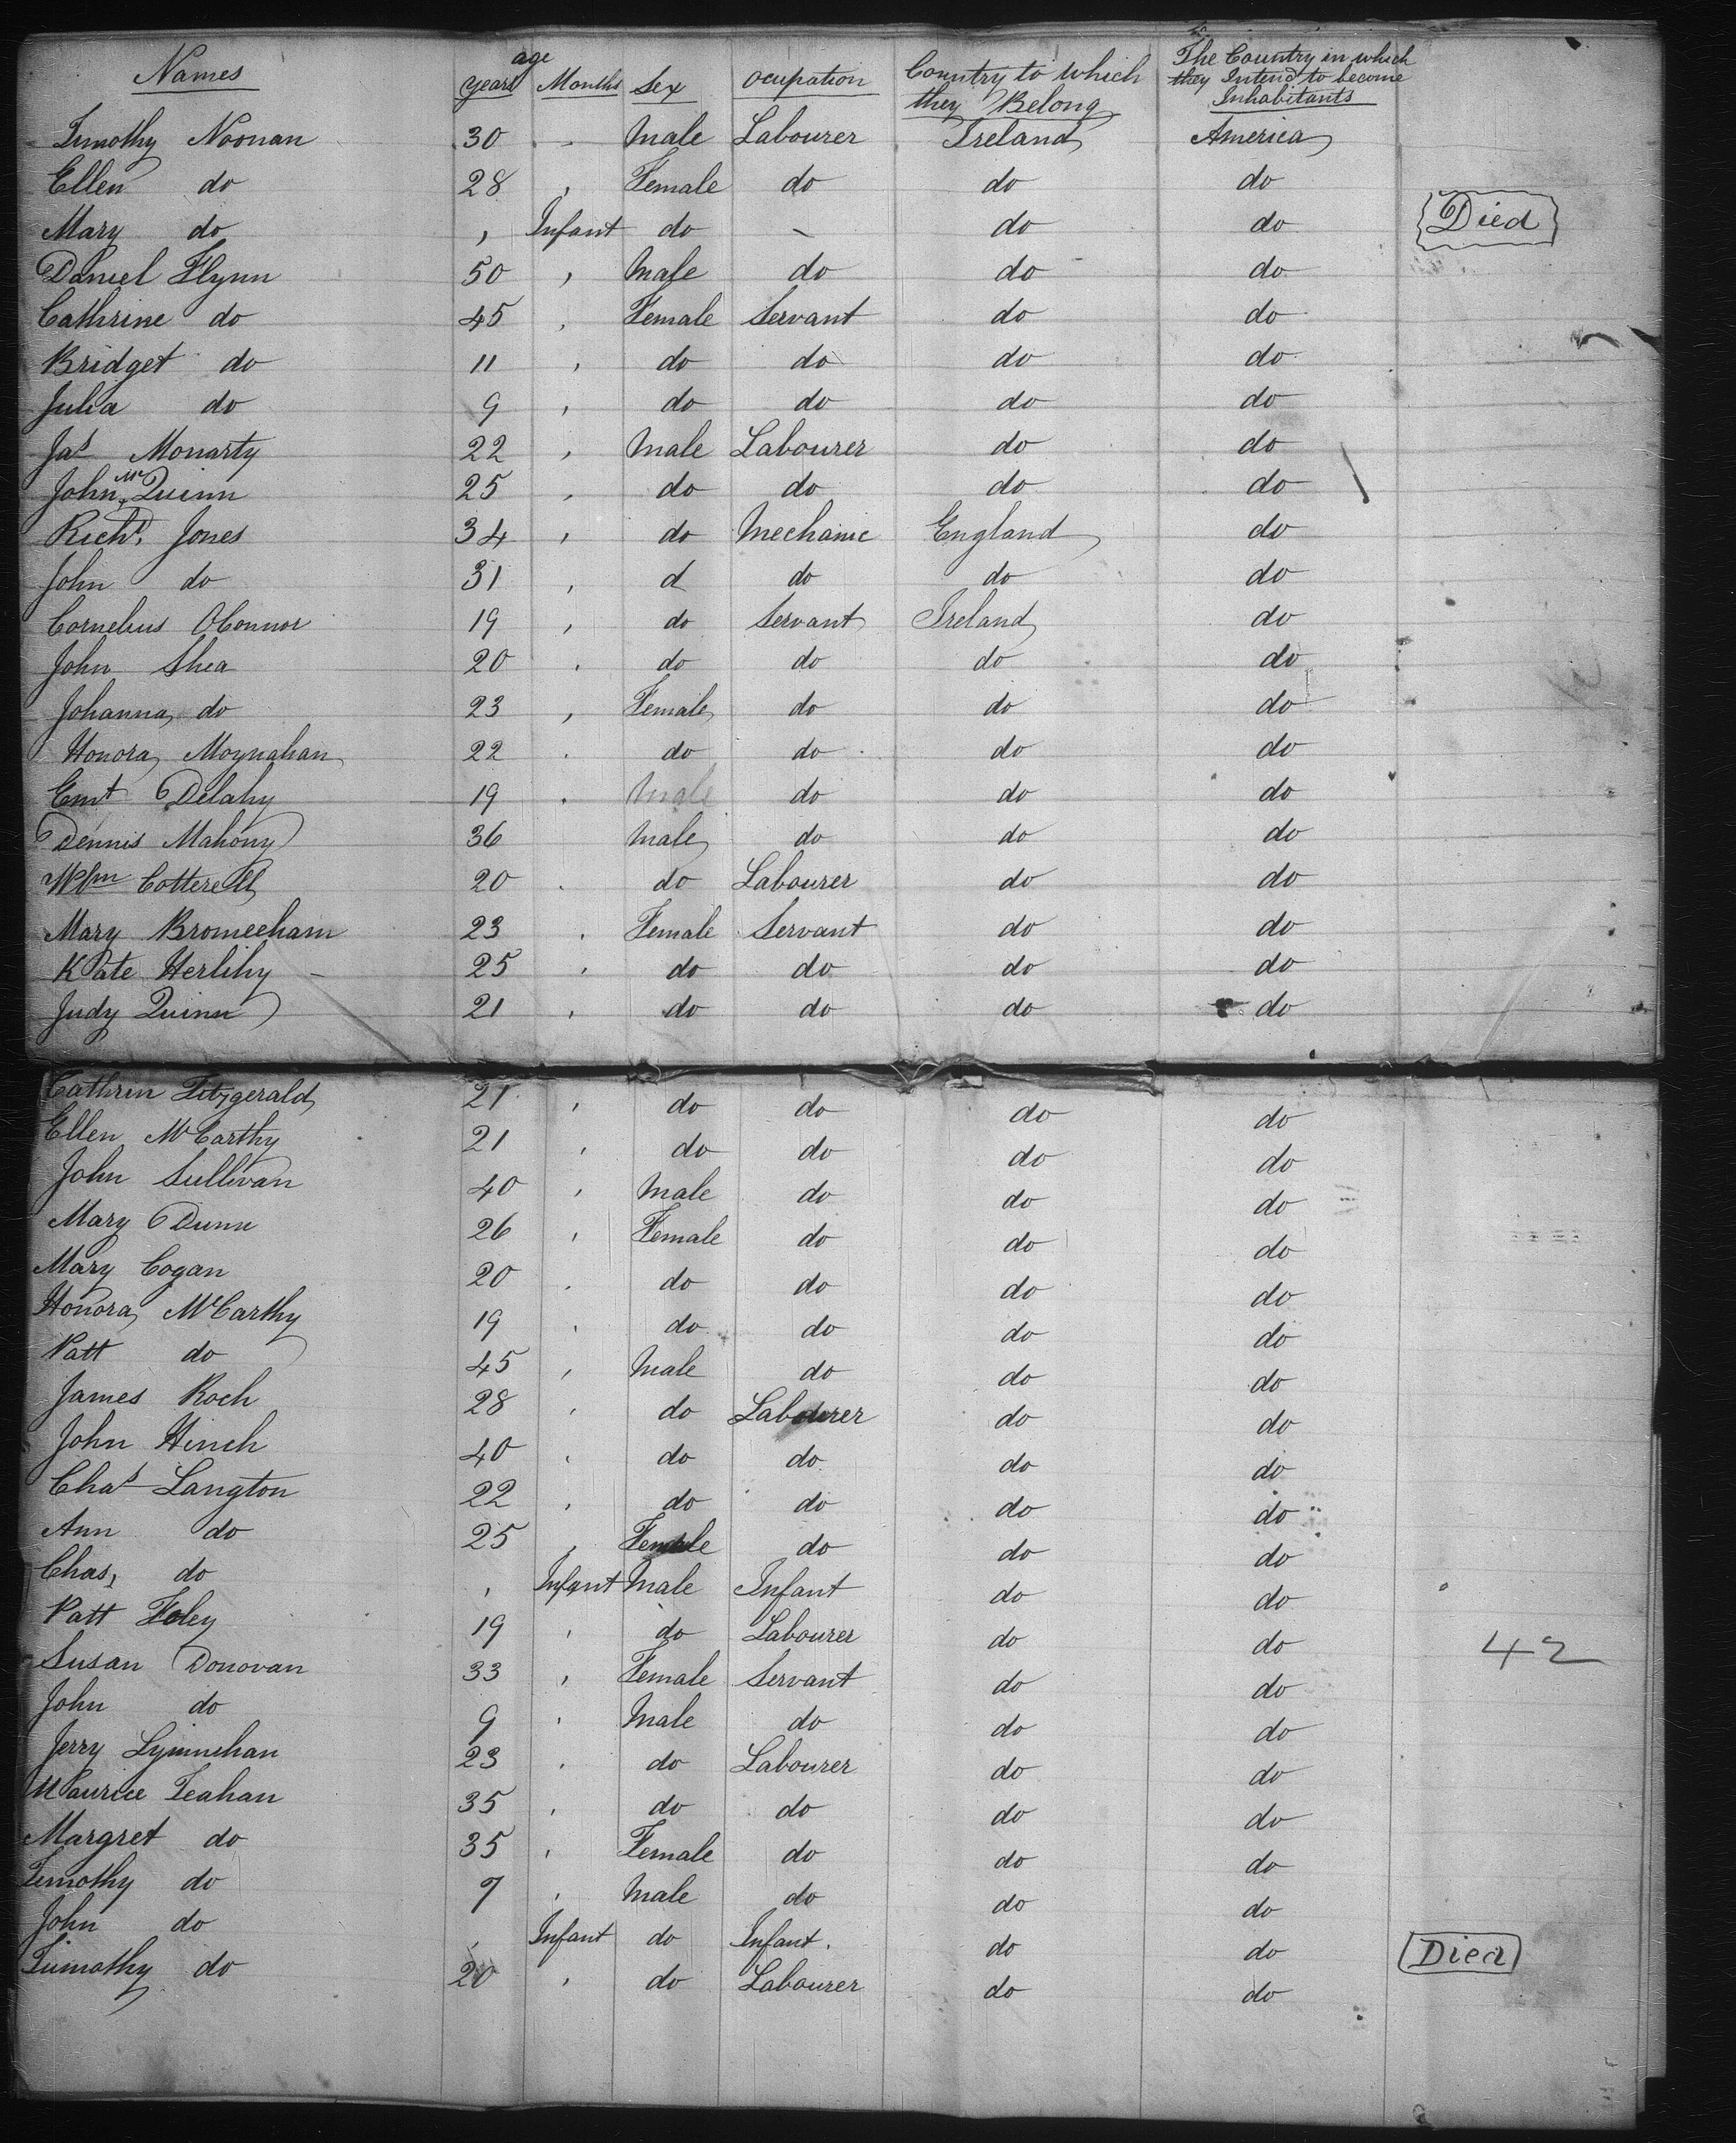 Names age years Months Sex ocupation Country to which they Belong The Country in which they Intend to become Inhabitants
Timothy Noonan 30 - Male Labourer Ireland America
Ellen do 28 , Female do do do
Mary do , Infant do - do do Died
Daniel Flynn 50 , Male do do do
Cathrine do 45 , Female Servant do do
Bridget do 11 , do do do do
Julia do 9 , do do do do
Jas Moriarty 22 , Male Labourer do do
John Mc Quinn 25 , do do do do
Richd. Jones 34 , do Mechanic England do
John do 31 , d do do do
Cornelius OConnor 19 , do Servant Ireland do
John Shea 20 , do do do do
Johanna do 23 , Female do do do
Honora Moynahan 22 . do do do do
Delahy 19 . Male do do do
Dennis Mahony 36 Male do do do
Wm Cotterell 20 . do Labourer do do
Mary Bromeeham 23 . Female Servant do do
Kate Herlihy - 25 , do do do do
Judy Quinn 21 , do do do do
Cathren Fitzgerald 21 , do do do do
Ellen McCarthy 21 , do do do do
John Sullivan 40 , Male do do do
Mary Dunn 26 , Female do do do
Mary Cogan 20 . do do do do
Honora McCarthy 19 , do do do do
Patt do 45 , Male do do do
James Roch 28 , do Labourer do do
John Hinch 40 , do do do do
Chas Langton 22 , do do do do
Ann do 25 , Female do do do
Chas, do , Infant Male Infant do do
Patt Foley 19 , do Labourer do do
Susan Donovan 33 , Female Servant do do 42
John do 9 , Male do do do
Jerry Lynnehan 23 , do Labourer do do
Maurice Leahan 35 , do do do do
Margret do 35 , Female do do do
Timothy do 7 , Male do do do
John do , Infant do Infant. do do Died
Timothy do 20 , do Labourer do do